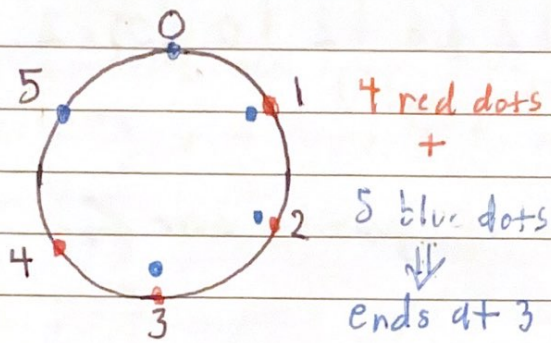 0
5
1
4 red dots
+
5 blue dots
2
4
⇓
3
ends at 3